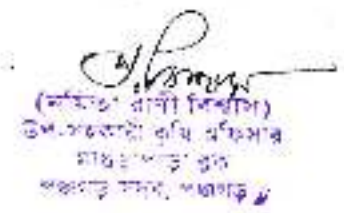 (নমিতা রানী বিশ্বাস)
উপ-সহকারী কৃষি অফিসার
ব্লক
পঞ্চগড় সদর, পঞ্চগড়